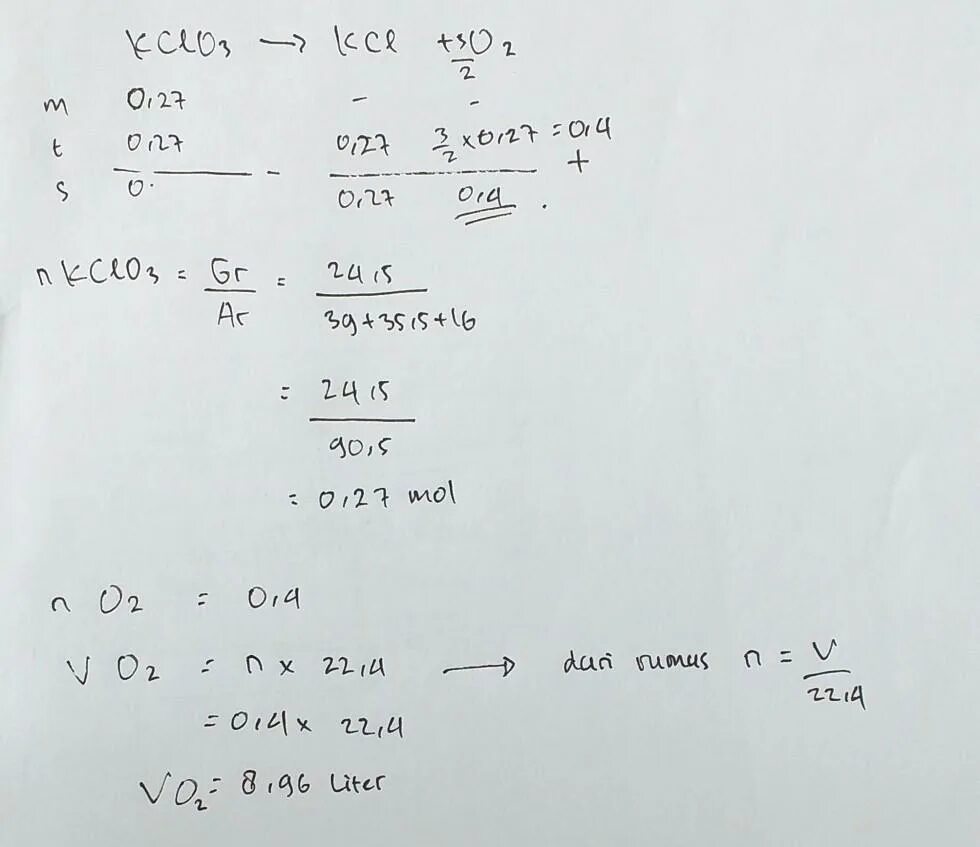 KClO3 → KCl + 3/2 O2
m 0,27 - -
t 0,27 0,27 3/2 x 0,27 = 0,4
s 0. - 0,27 0,4 . +
n KClO3 = Gr/Ar = 24,5 / 39+35,5+16
= 24,5 / 90,5
= 0,27 mol
n O2 = 0,4
V O2 = n x 22,4 → dari rumus n = V / 22,4
= 0,4 x 22,4
V O2 = 8,96 Liter